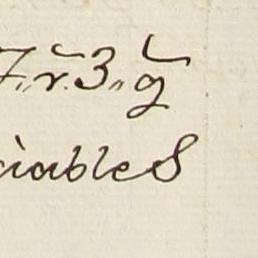 7,, r. 3,, g
iables